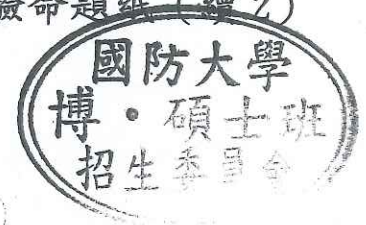 命題紙
國防大學
博·碩士班
招生委員會